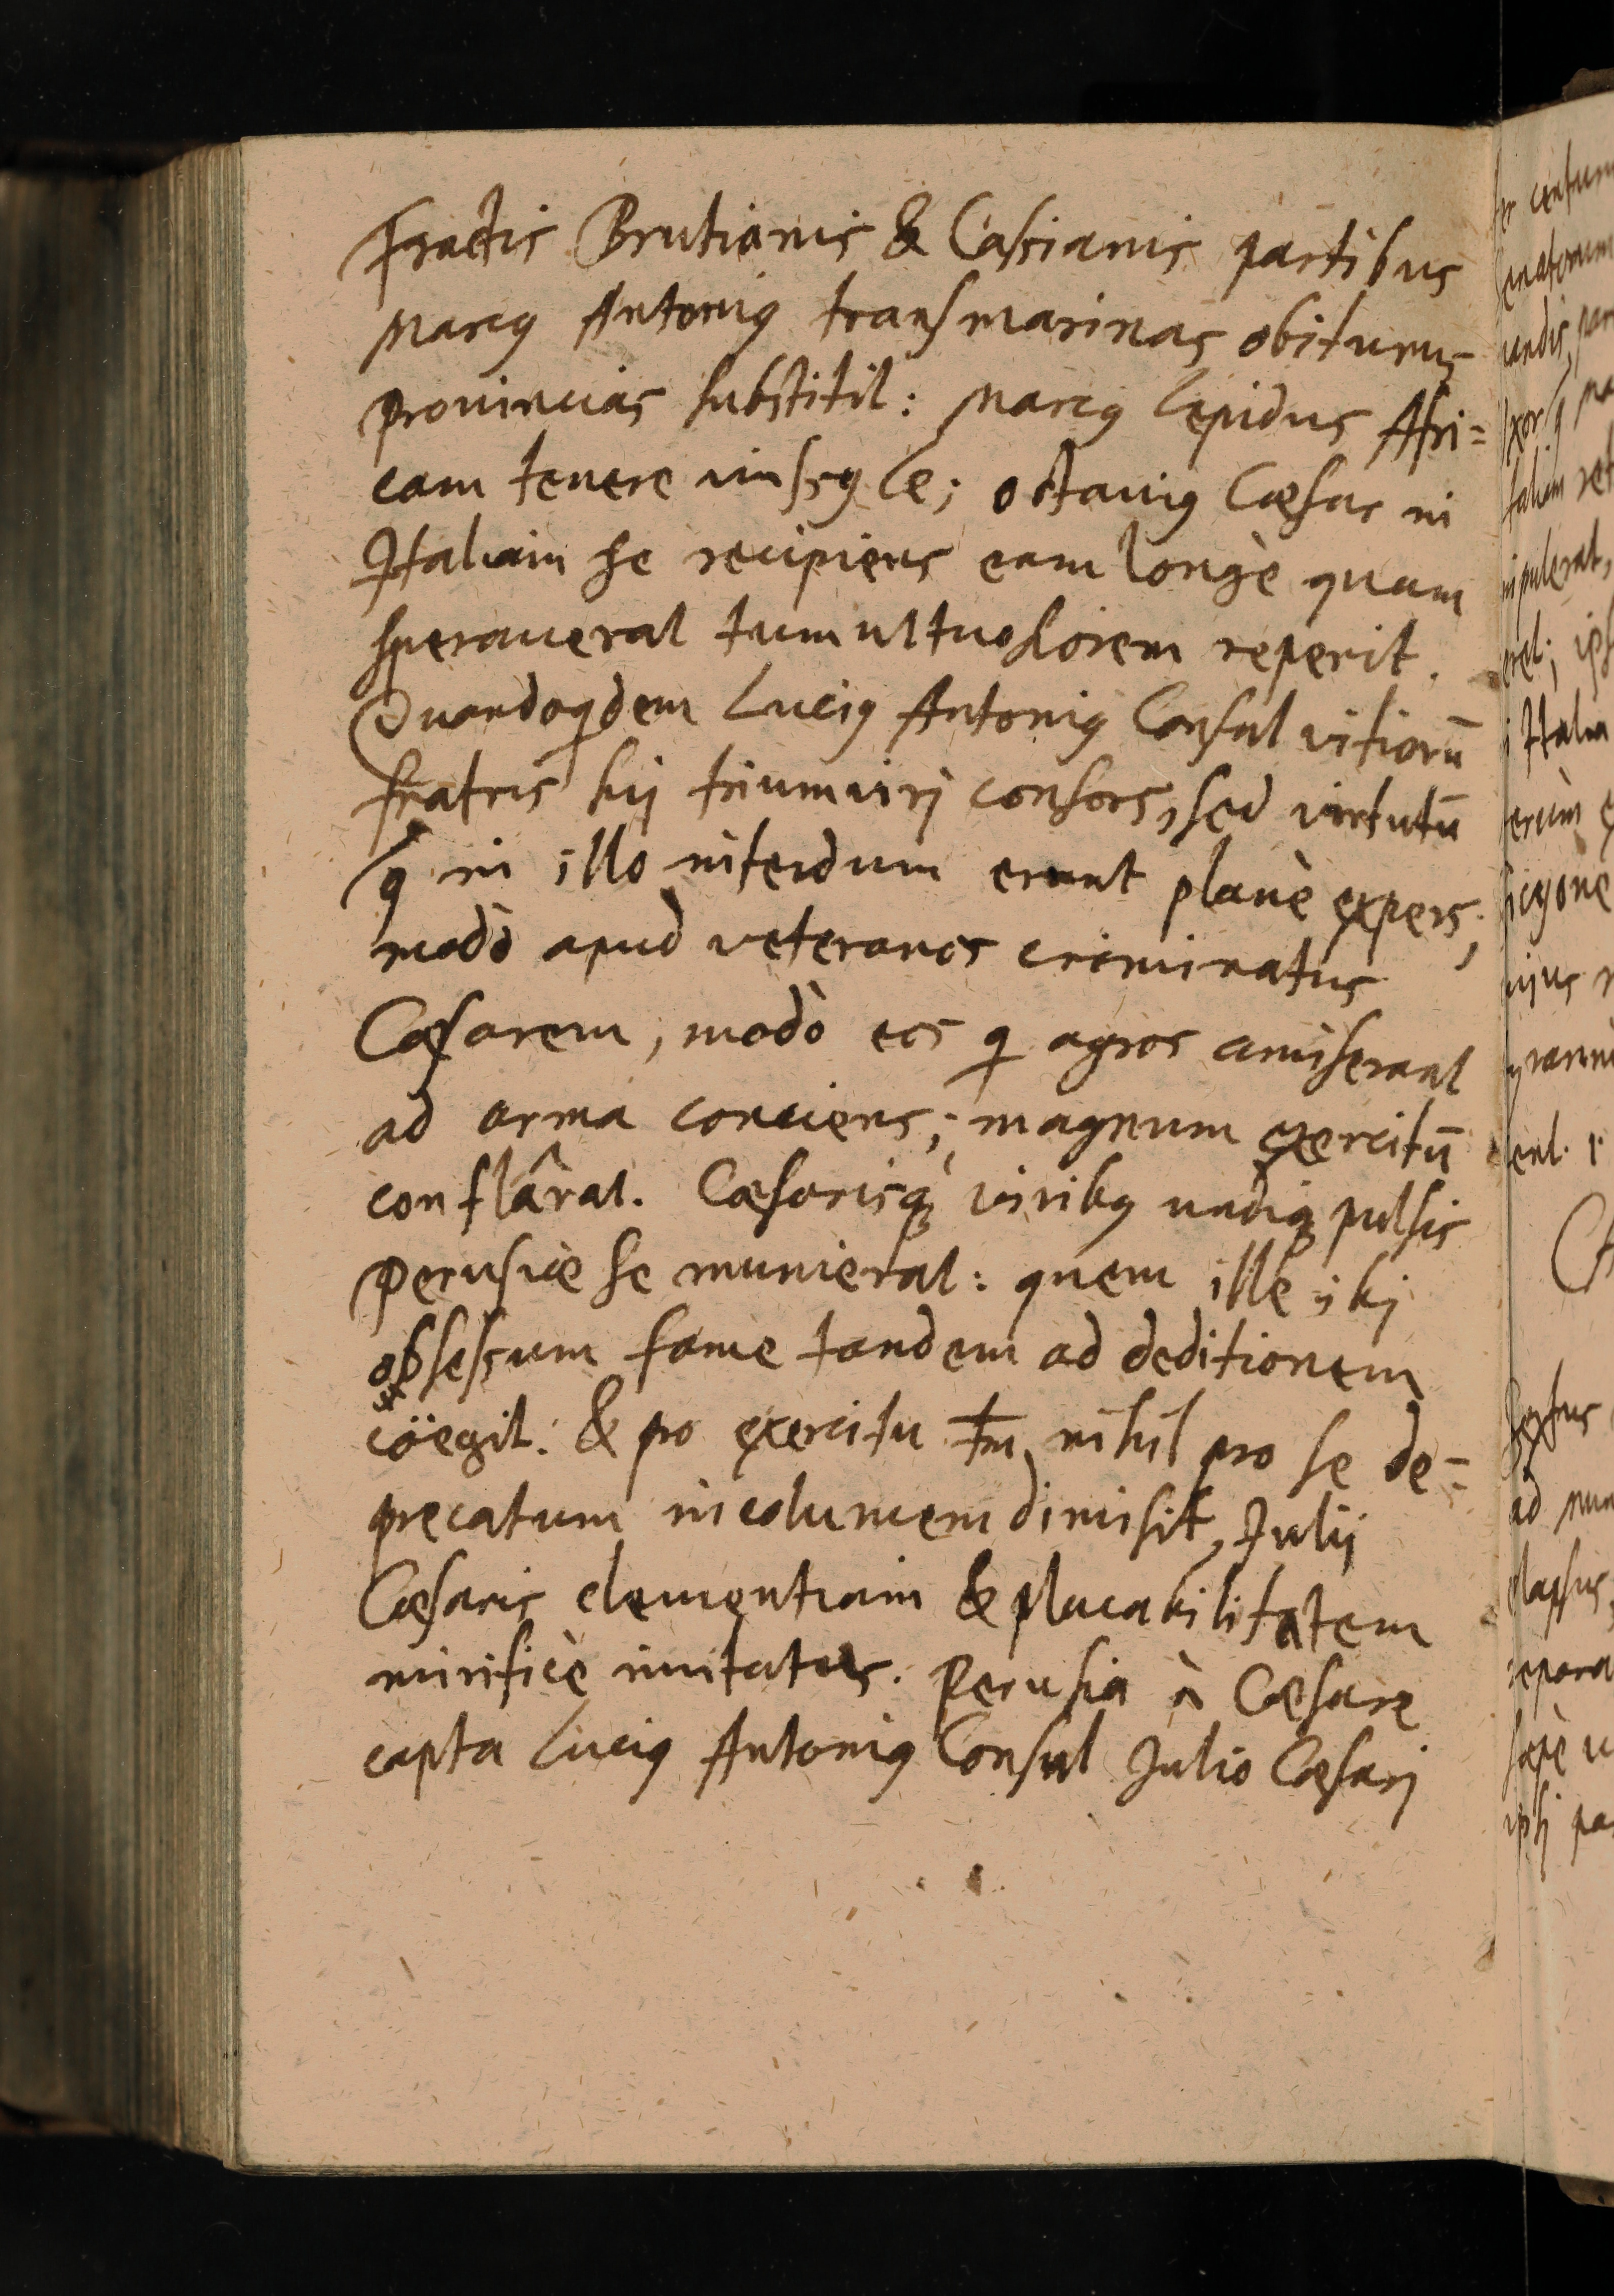 Fractis Brutianis & Cassianis partibus
Marcꝰ Antoniꝰ transmarinas obiturus
prouincias substitit: Marcꝰ Lepidus Afri=
cam tenere iussꝰ ē; Octauiꝰ Cæsar in
Italiam se recipiens eam longè quam
sperauerat tumultuosiorem reperit.
Quandoqdem Luciꝰ Antoniꝰ Consul vitiorū
fratris sui triumuiri consors, sed virtutū
q in illo interdum erant planè expers,
modò apud veteranos criminatus
Cæsarem, modò eos q agros amiserant
ad arma conciens, magnum exercitū
conflârat. Cæsarisq́; viribꝰ undiq; pulsis
Perusiæ se munierat: quem ille ibi
obsessum fame tandem ad deditionem
cöegit. & pro exercitu tm̄, nihil pro se de=
precatum incolumem dimisit, Iulij
Cæsaris clementiam & placabilitatem
mirificè imitatus. Perusia à Cæsare
capta Luciꝰ Antoniꝰ Consul Iulio Cæsari